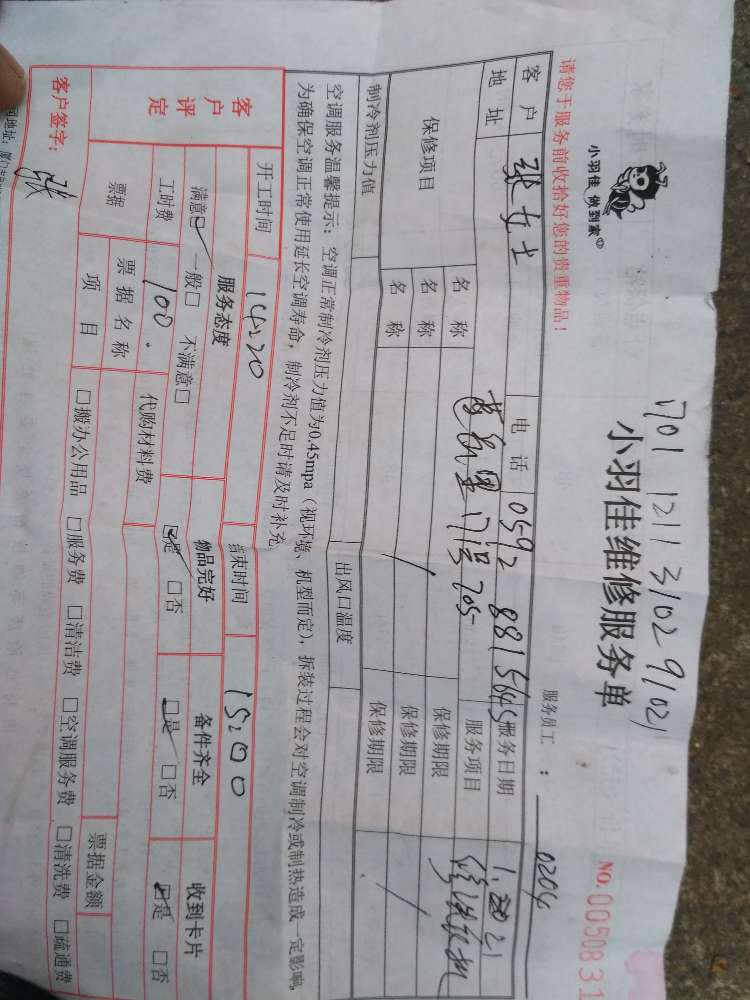 1701 1211 3102 91021
小羽佳 做到家
小羽佳维修服务单
NO. 0050831
请您于服务前收拾好您的贵重物品!
服务员工: 0204
客户 张女士 电话 0592 8815645 服务日期 1.21
地址 门1号705 服务项目 修洗衣机
保修项目 名称 保修期限
名称 保修期限
制冷剂压力值 出风口温度
空调服务温馨提示:空调正常制冷剂压力值为0.45mpa(视环境、机型而定),拆装过程会对空调制冷或制热造成一定影响,
为确保空调正常使用延长空调寿命,制冷剂不足时请及时补充。
开工时间 14:20 结束时间 15:00
客户评定 服务态度 物品完好 备件齐全 收到卡片
满意☑ 一般□ 不满意□ ☑是 □否 ☑是 □否 ☑是 □否
工时费 100. 代购材料费
票据 票据名称 票据金额
项目 □搬办公用品 □服务费 □清洁费 □空调服务费 □清洗费 □疏通费
客户签字: 张